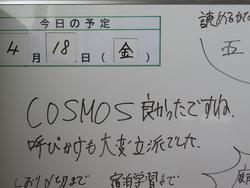 今日の予定
4月18日(金)
読めるかな
五
COSMOS 良かったですね。
呼びかけも大変立派でした。
しおり〆切まで
宿泊学習まで